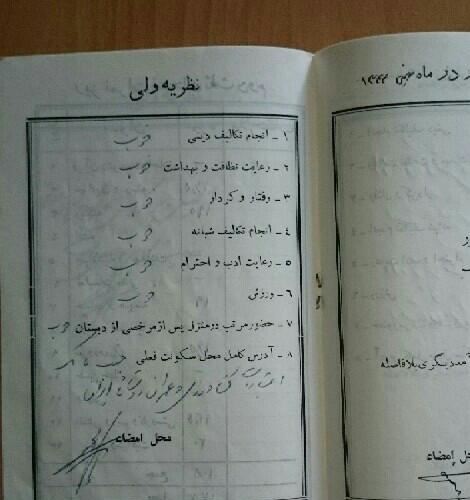 نظریه ولی
۱ - انجام تکالیف دینی خوب
۲ - رعایت نظافت و بهداشت خوب
۳ - رفتار و کردار خوب
۴ - انجام تکالیف شبانه خوب
۵ - رعایت ادب و احترام خوب
۶ - ورزش خوب
۷ - حضور مرتب در منزل پس از مرخصی از دبستان خوب
۸ - آدرس کامل محل سکونت فعلی
محل امضاء
در ماه
دیگری بلافاصله
امضاء